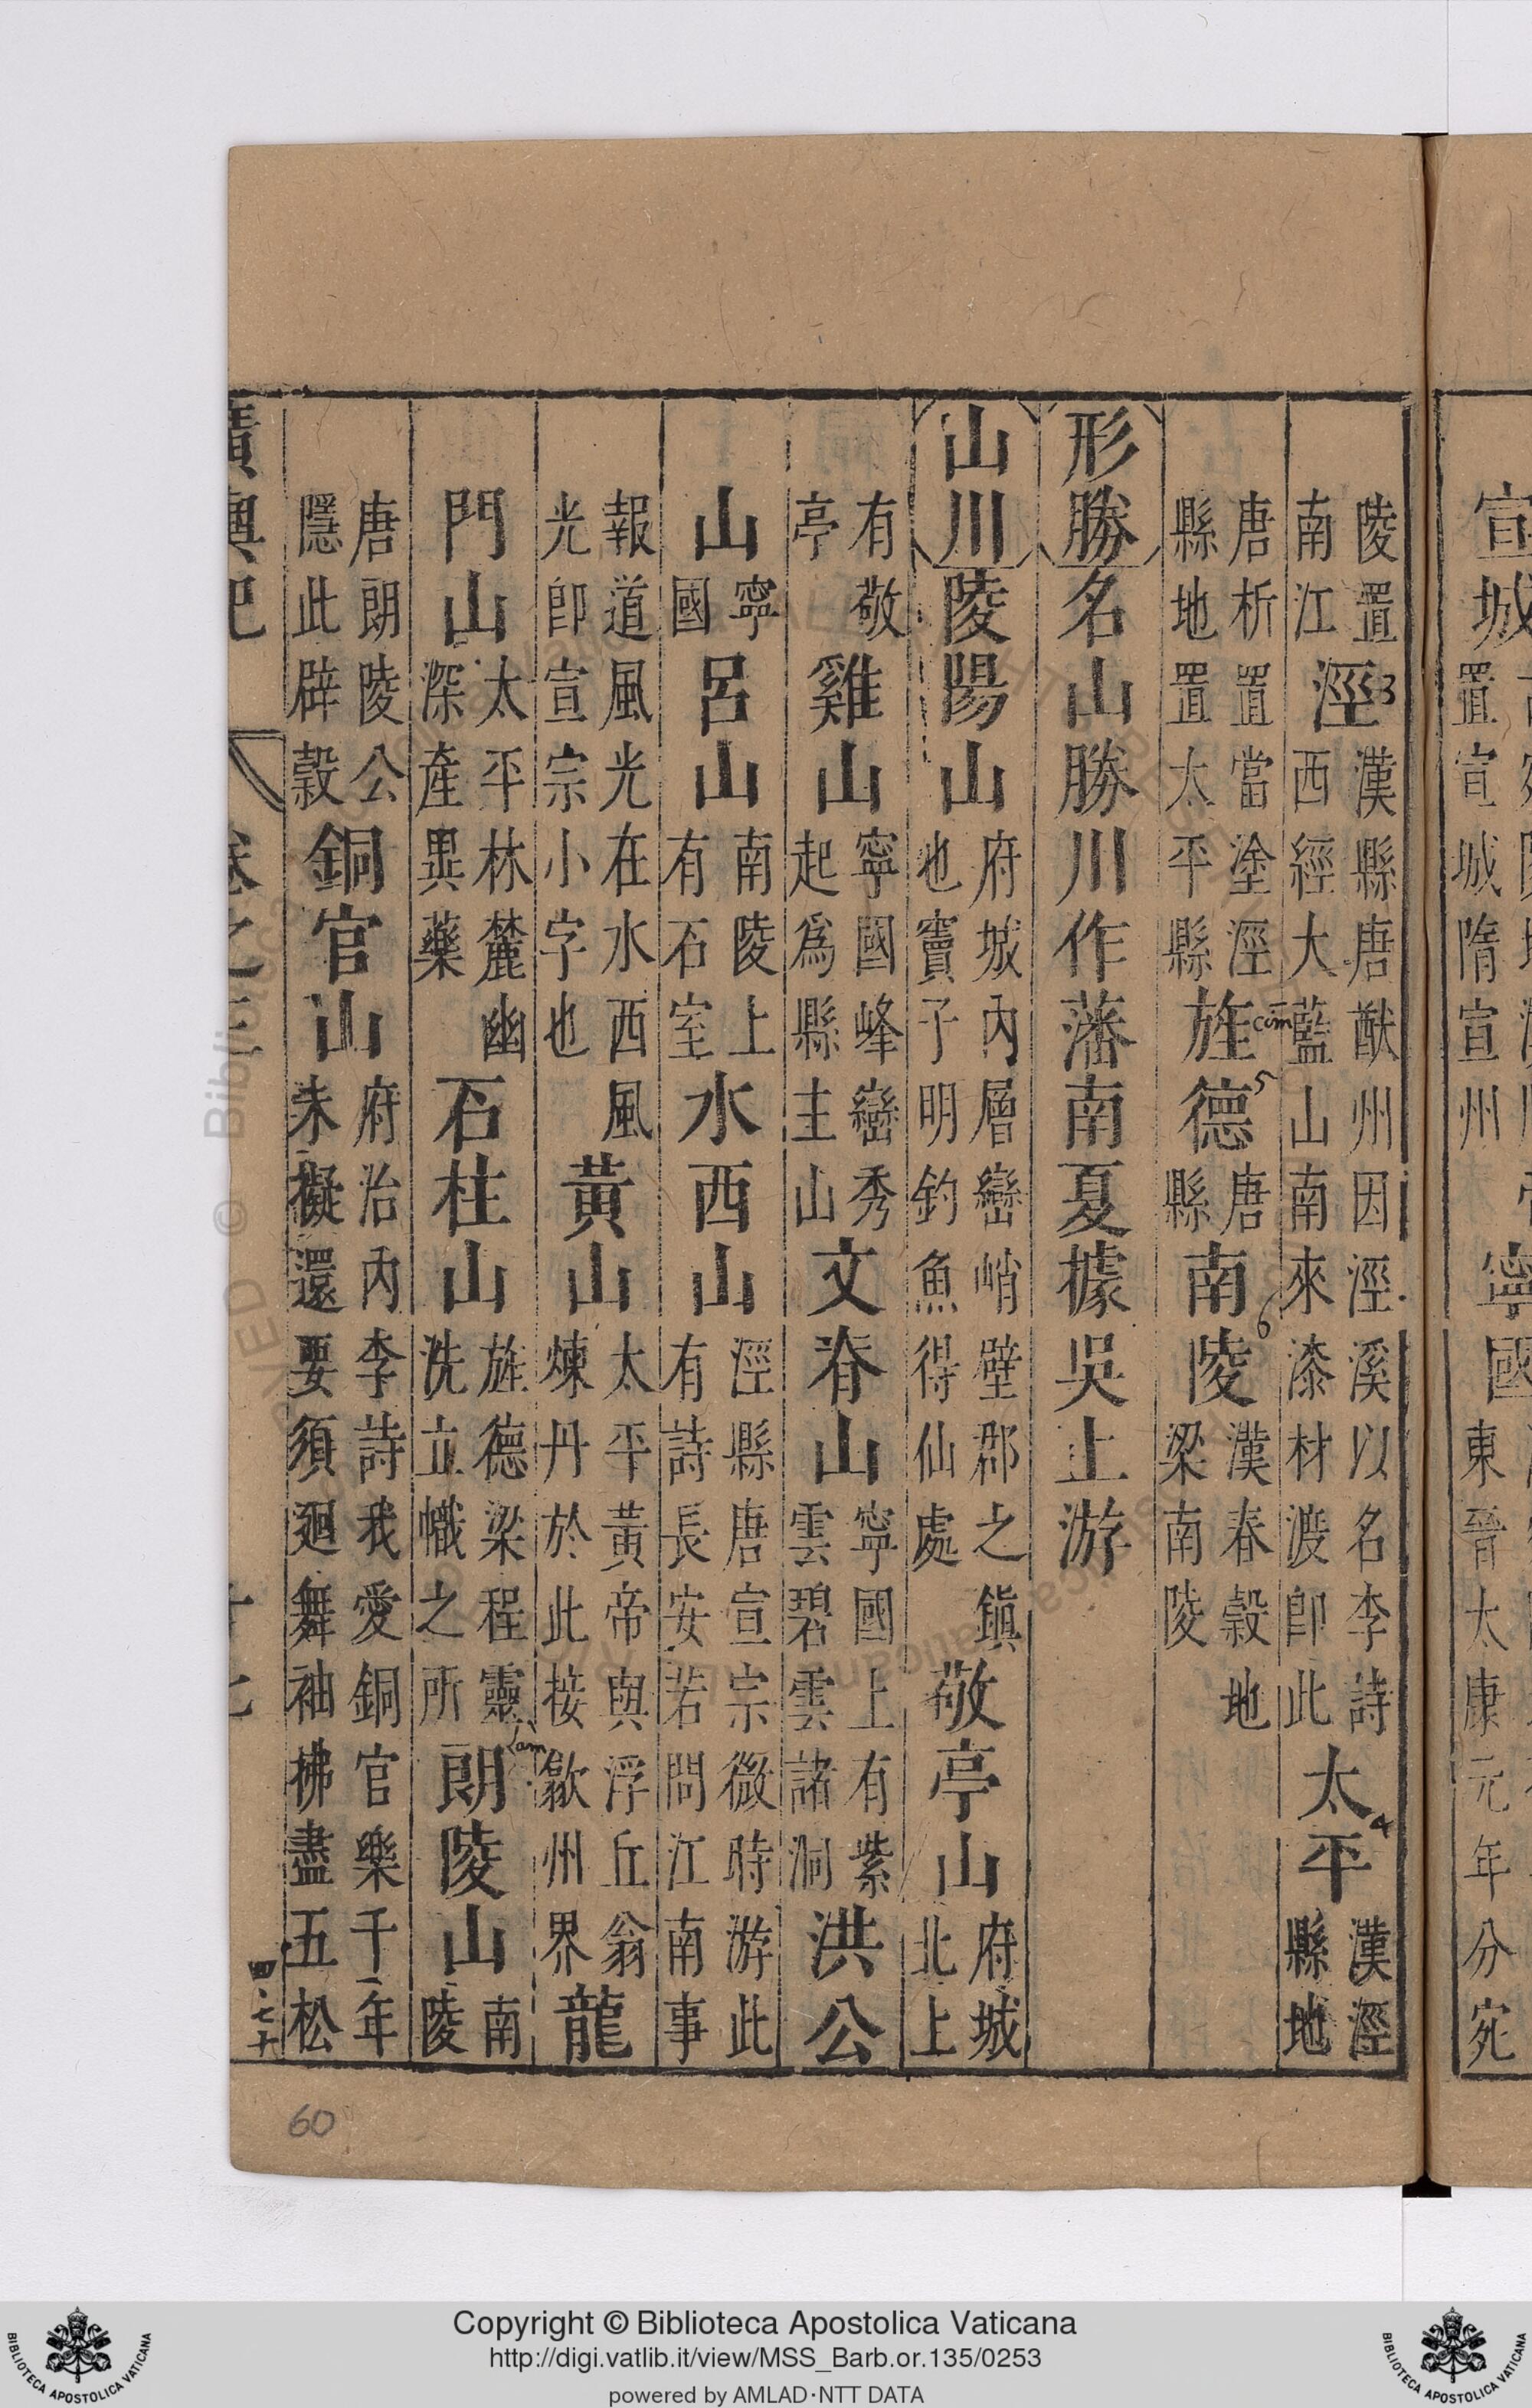 宣城置宣城隋宣州寧國東晉太康元年分宛
陵置南江涇漢縣唐猷州因涇溪以名李詩西經大藍山南來漆材渡即此太平漢涇縣地
唐析置當塗涇縣地置太平縣旌德唐縣南陵漢春穀地梁南陵
形勝名山勝川作藩南夏據吳上游
山川陵陽山府城內層巒峭壁郡之鎮也竇子明釣魚得仙處敬亭山府城北上
有敬亭雞山寧國峰巒秀起爲縣主山文脊山寧國上有紫雲碧雲諸洞洪公
山寧國呂山南陵上有石室水西山涇縣唐宣宗微時游此有詩長安若問江南事
報道風光在水西風光卽宣宗小字也黃山太平黃帝與浮丘翁煉丹於此接歙州界龍
門山太平林麓幽深產異藥石柱山旌德梁程靈洗立幟之所朗陵山南陵
唐朗陵公隱此辟穀銅官山府治內李詩我愛銅官樂千年未擬還要須迴舞袖拂盡五松
廣輿記 卷之三 十七
60
Copyright © Biblioteca Apostolica Vaticana
http://digi.vatlib.it/view/MSS_Barb.or.135/0253
powered by AMLAD·NTT DATA
BIBLIOTECA APOSTOLICA VATICANA
BIBLIOTECA APOSTOLICA VATICANA